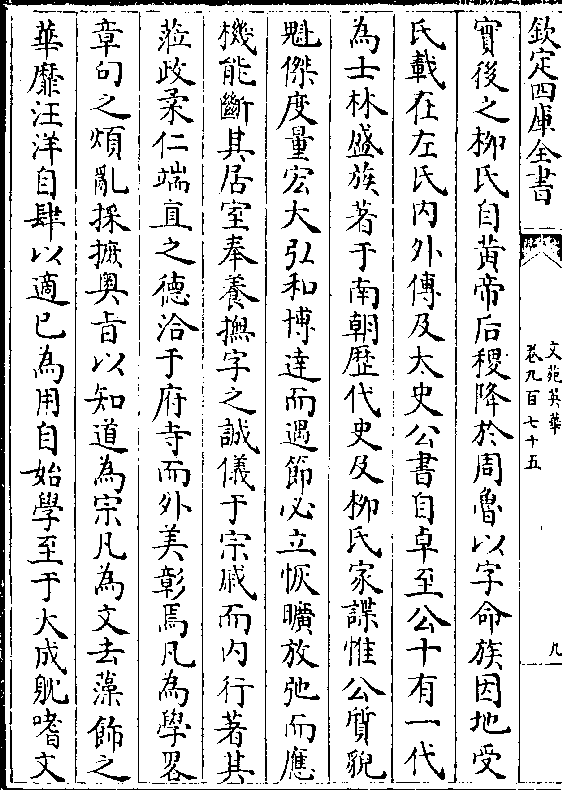 欽定四庫全書
文苑英華
卷九百七十五
九
實後之柳氏自黄帝后稷降於周魯以字命族因地受
氏載在左氏内外傳及太史公書自卓至公十有一代
為士林盛族著于南朝歴代史及柳氏家諜惟公質貌
魁傑度量宏大弘和博達而遇節必立恢曠放弛而應
機能斷其居室奉養撫字之誠儀于宗戚而内行著其
蒞政柔仁端直之德洽于府寺而外美彰焉凡為學畧
章句之煩亂採摭奥㫖以知道為宗凡為文去藻飾之
華靡汪洋自肆以適已為用自始學至于大成躭嗜文